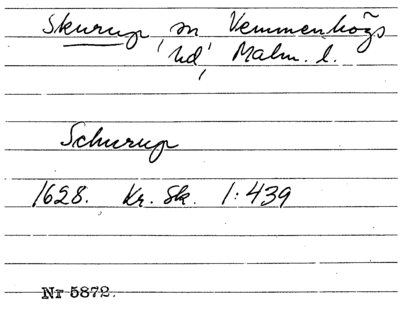 Skurup, sn Vemmenhögs
hd, Malm. l.
Schurup
1628. Kr. Sk. 1:439
Nr 5872.